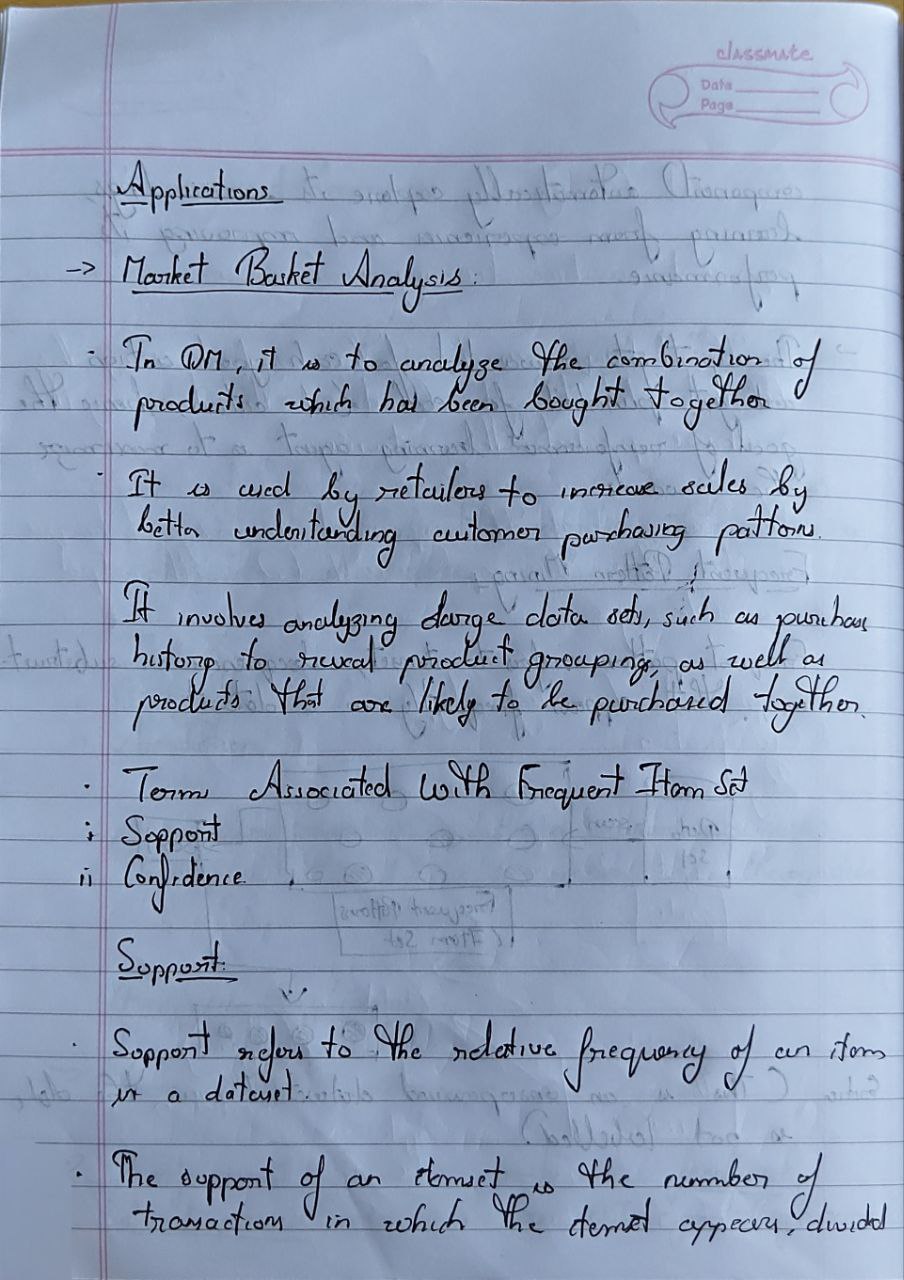 classmate
Date
Page
Applications
-> Market Basket Analysis:
· In DM, it is to analyze the combination of
products which has been bought together
· It is used by retailers to increase sales by
better understanding customer purchasing pattern.
It involves analyzing large data sets, such as purchase
history to reveal product groupings, as well as
products that are likely to be purchased together.
· Terms Associated with Frequent Item Set
i Support
ii Confidence
Support:
· Support refers to the relative frequency of an item
in a dataset.
· The support of an itemset is the number of
transaction in which the itemset appears, divided